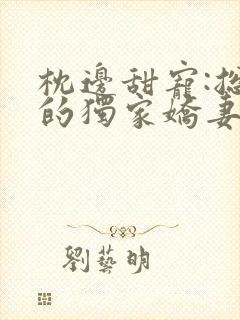 枕邊甜寵:
的獨家嬌妻
劉藝明